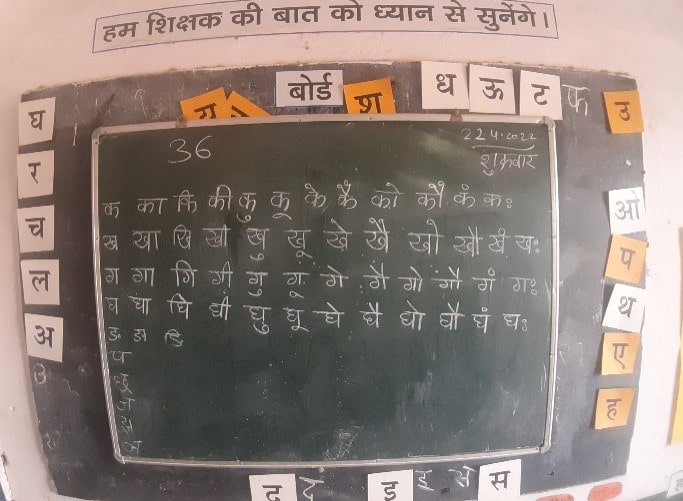 हम शिक्षक की बात को ध्यान से सुनेंगे।
बोर्ड
श ध ऊ ट फ उ
घ
र
च
ल
अ
36
22.4.2022
शुक्रवार
क का कि की कु कू के कै को कौ कं कः
ख खा खि खी खु खू खे खै खो खौ खं खः
ग गा गि गी गु गू गे गै गो गौ गं गः
घ घा घि घी घु घू घे घै घो घौ घं घः
ओ
प
थ
ए
ह
द द इ इ स स